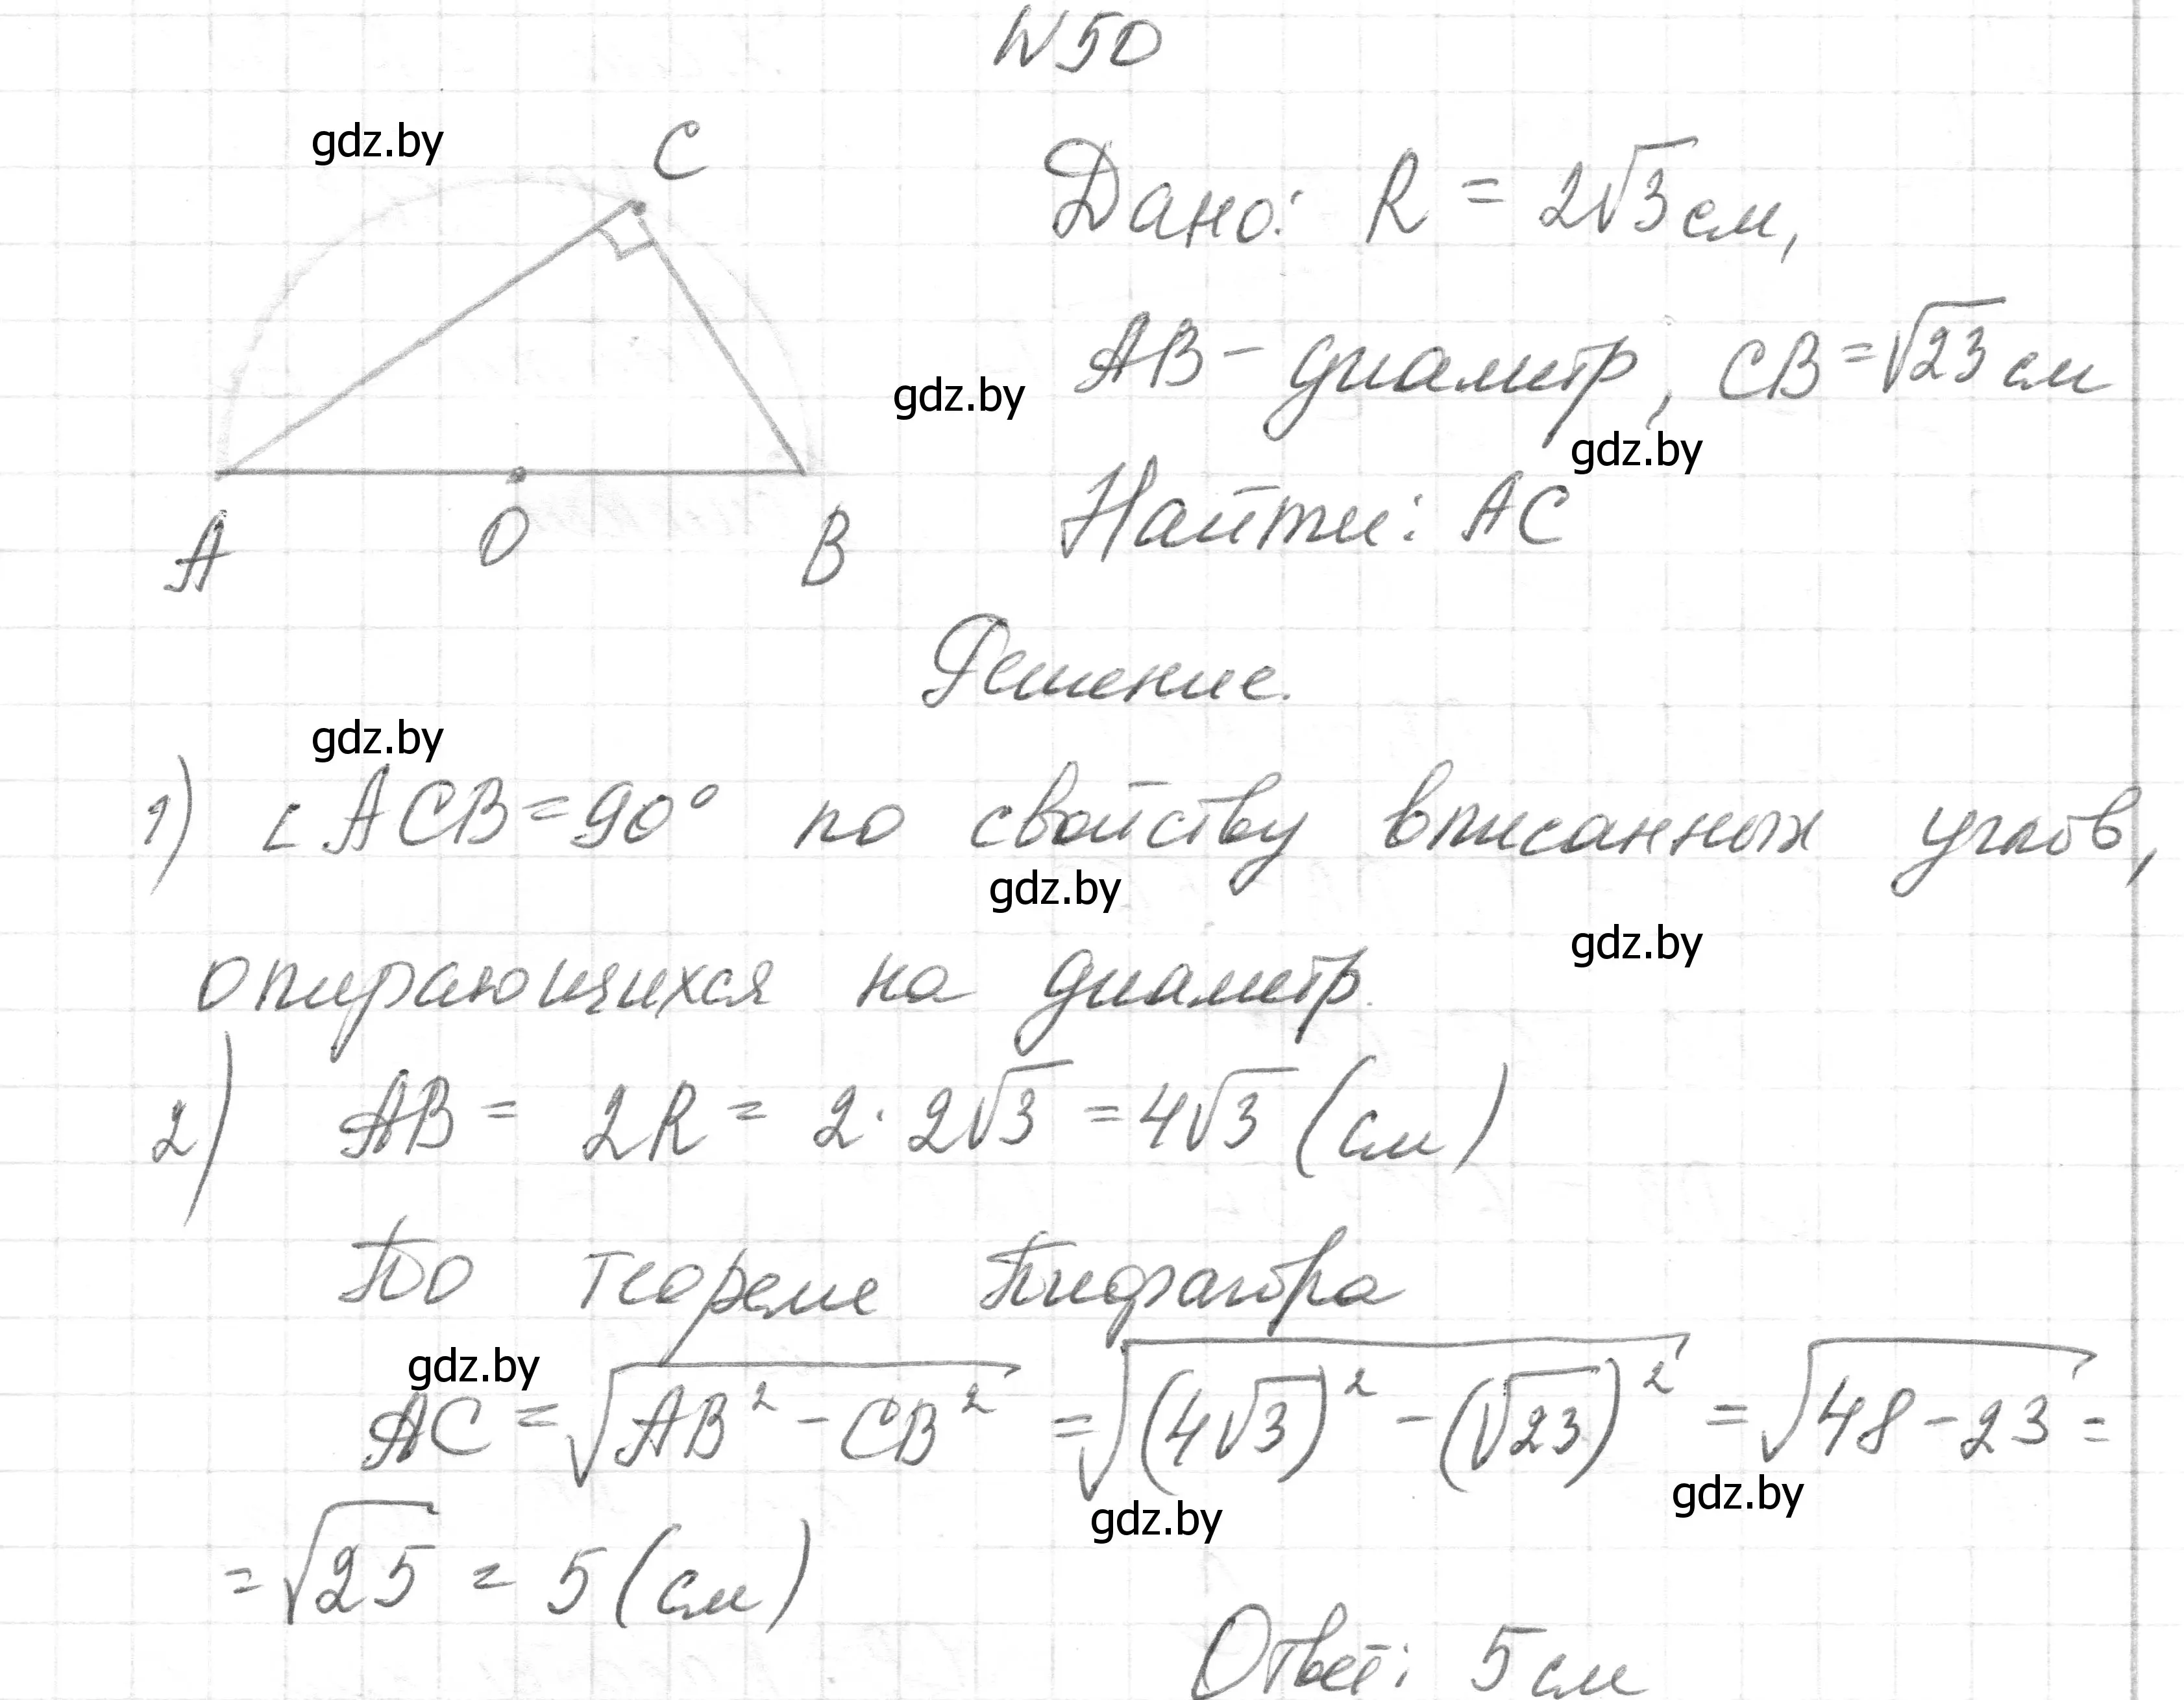 N50
gdz.by
C
Дано: R = 2√3 см,
gdz.by
AB - диаметр, CB = √23 см
gdz.by
A O B
Найти: AC
Решение.
gdz.by
1) ∠ACB = 90° по свойству вписанных углов,
gdz.by
gdz.by
опирающихся на диаметр.
2) AB = 2R = 2 · 2√3 = 4√3 (см)
По теореме Пифагора
gdz.by
AC = √(AB² - CB²) = √((4√3)² - (√23)²) = √(48 - 23) =
gdz.by
gdz.by
= √25 = 5 (см)
Ответ: 5 см